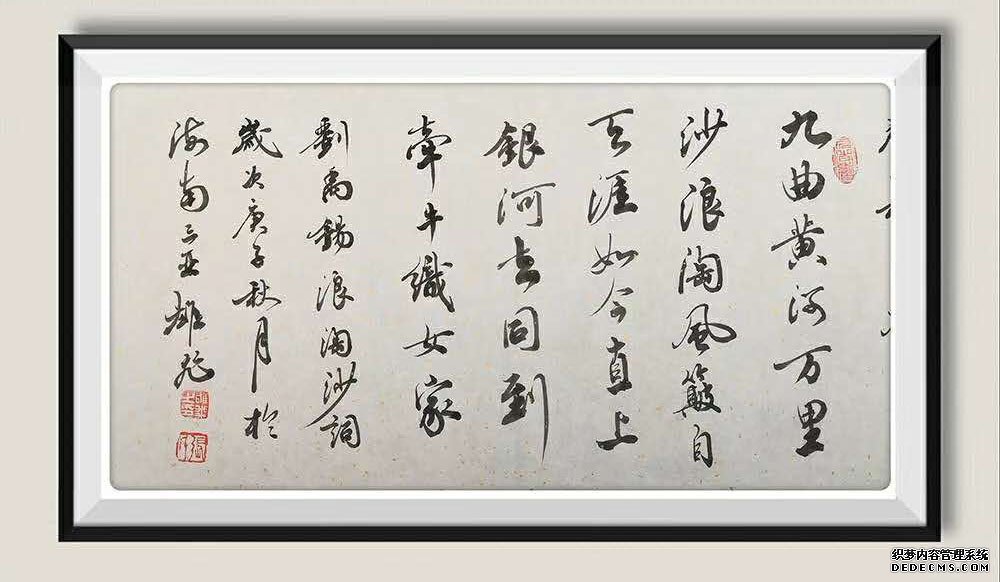 九曲黄河万里
沙浪淘風簸自
天涯如今直上
銀河去同到
牽牛織女家
劉禹錫浪淘沙詞
歲次庚子秋月於
海南三亚雄
织梦内容管理系统
DEDECMS.COM